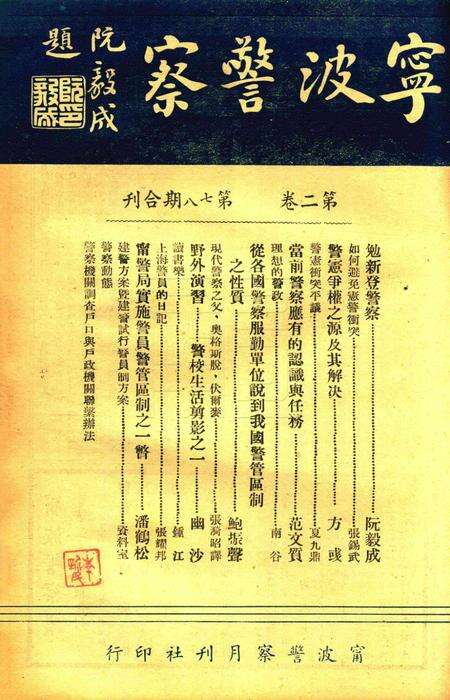 寧波警察
阮毅成
題
第二卷 第七八期合刊
勉新登警察 阮毅成
如何避免憲警衝突 張錫武
警憲爭權之源及其解决 方彧
警憲衝突平議 夏九鼎
當前警察應有的認識與任務 范文質
理想的警政 南谷
從各國警察服勤單位說到我國警管區制
之性質 鮑振聲
現代警察之父，奧格斯脫，伏爾麥 張澍昭譯
野外演習——警校生活剪影之一 幽沙
讀書樂 鍾江
上海警員的日記 張耀邦
甯警局實施警員警管區制之一瞥 潘鶴松
建警方案暨建警試行警員制方案 資料室
警察動態
警察機關調查戶口與戶政機關聯繫辦法
甯波警察月刊社印行